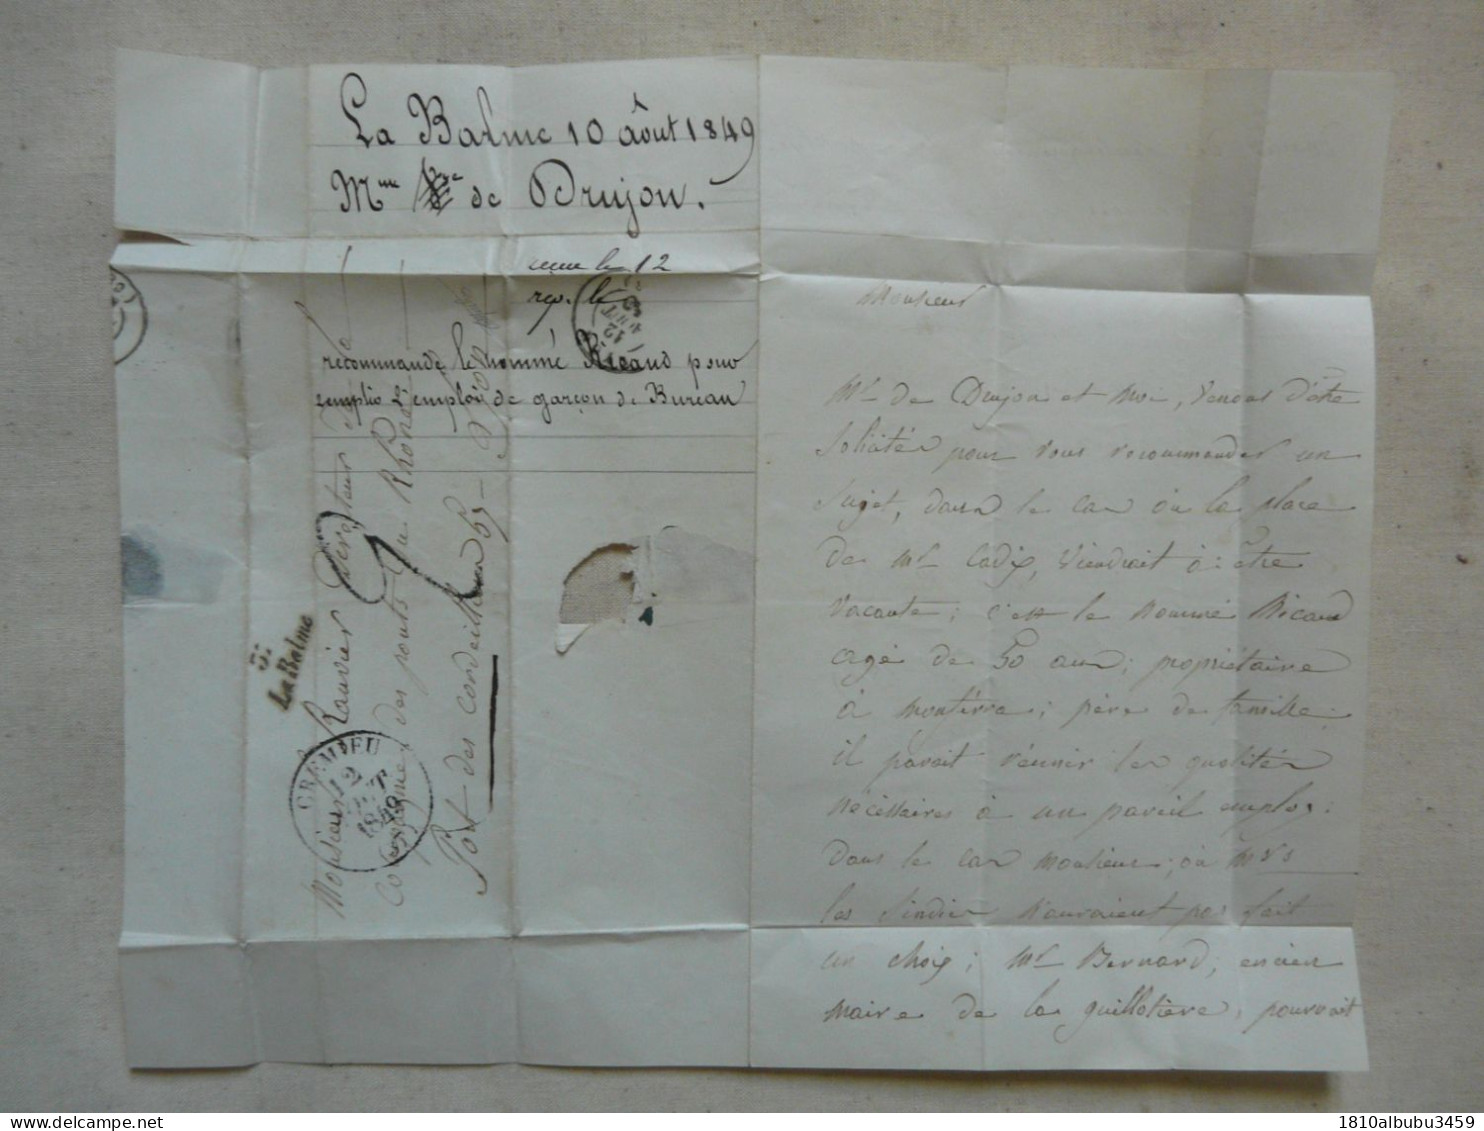 La Balme 10 Août 1849
Mme de Drujon.
reçue le 12
rep. le
recommande le nommé Ricaud pour
remplir l'emploi de garçon de Bureau
12
AOUT
Monsieur Ravier Directeur
Compagnie des ponts du Rhône
Port des cordeilliers 63
Lyon
5
La Balme
CREMIEU
2
1849
Monsieur
Mr de Drujon et moi, venons d'être
solicités pour vous recommander un
sujet, dans le cas où la place
de Mr Cadix, viendrait à être
vacante; c'est le nommé Ricaud
agé de 50 ans; propriétaire
à Montierra; père de famille.
il parait réunir les qualités
nécessaires à un pareil employ:
Dans le cas monsieur; où Mrs
les Sindics n'auraient pas fait
un choix; Mr Bernard, encien
maire de la guillotière, pourrait
1810albubu3459